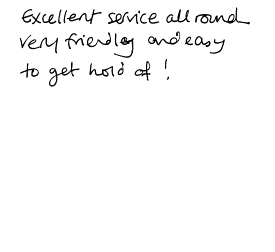 Excellent service all round
very friendly and easy
to get hold of !